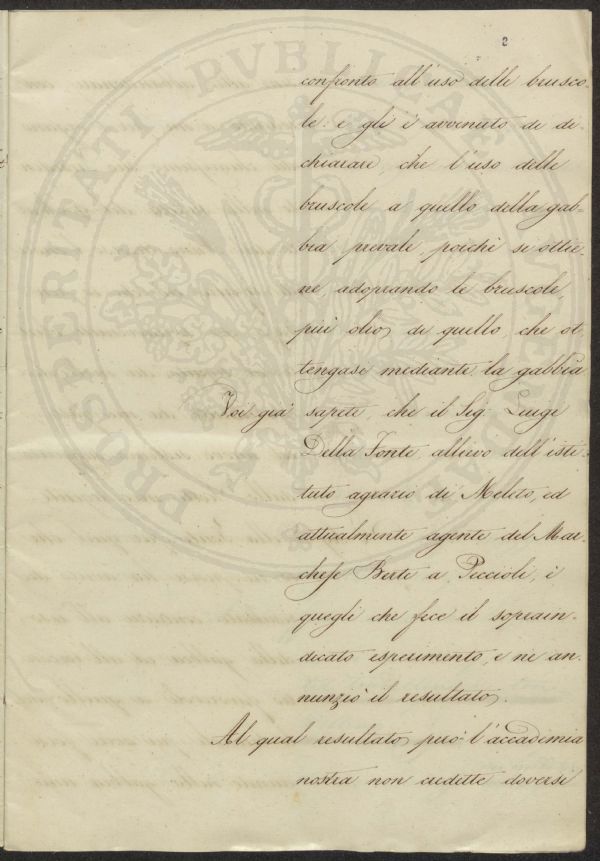 2
confronto all'uso delle brusco-
le: e gli è avvenuto di di-
chiarare, che l'uso delle
bruscole a quello della gab-
bia prevale poichè si ottie-
ne, adoprando le bruscole,
più olio, di quello, che ot-
tengasi mediante la gabbia
Voi già sapete, che il Sig. Luigi
Della Fonte, allievo dell'isti-
tuto agrario di Meleto, ed
attualmente agente del Mar-
chese Berte a Peccioli, è
quegli che fece il soprain-
dicato esperimento, e ne an-
nunziò il resultato.
Al qual resultato, però l'accademia
nostra non credette doversi
PROSPERITATI PVBLICAE AVGENDAE